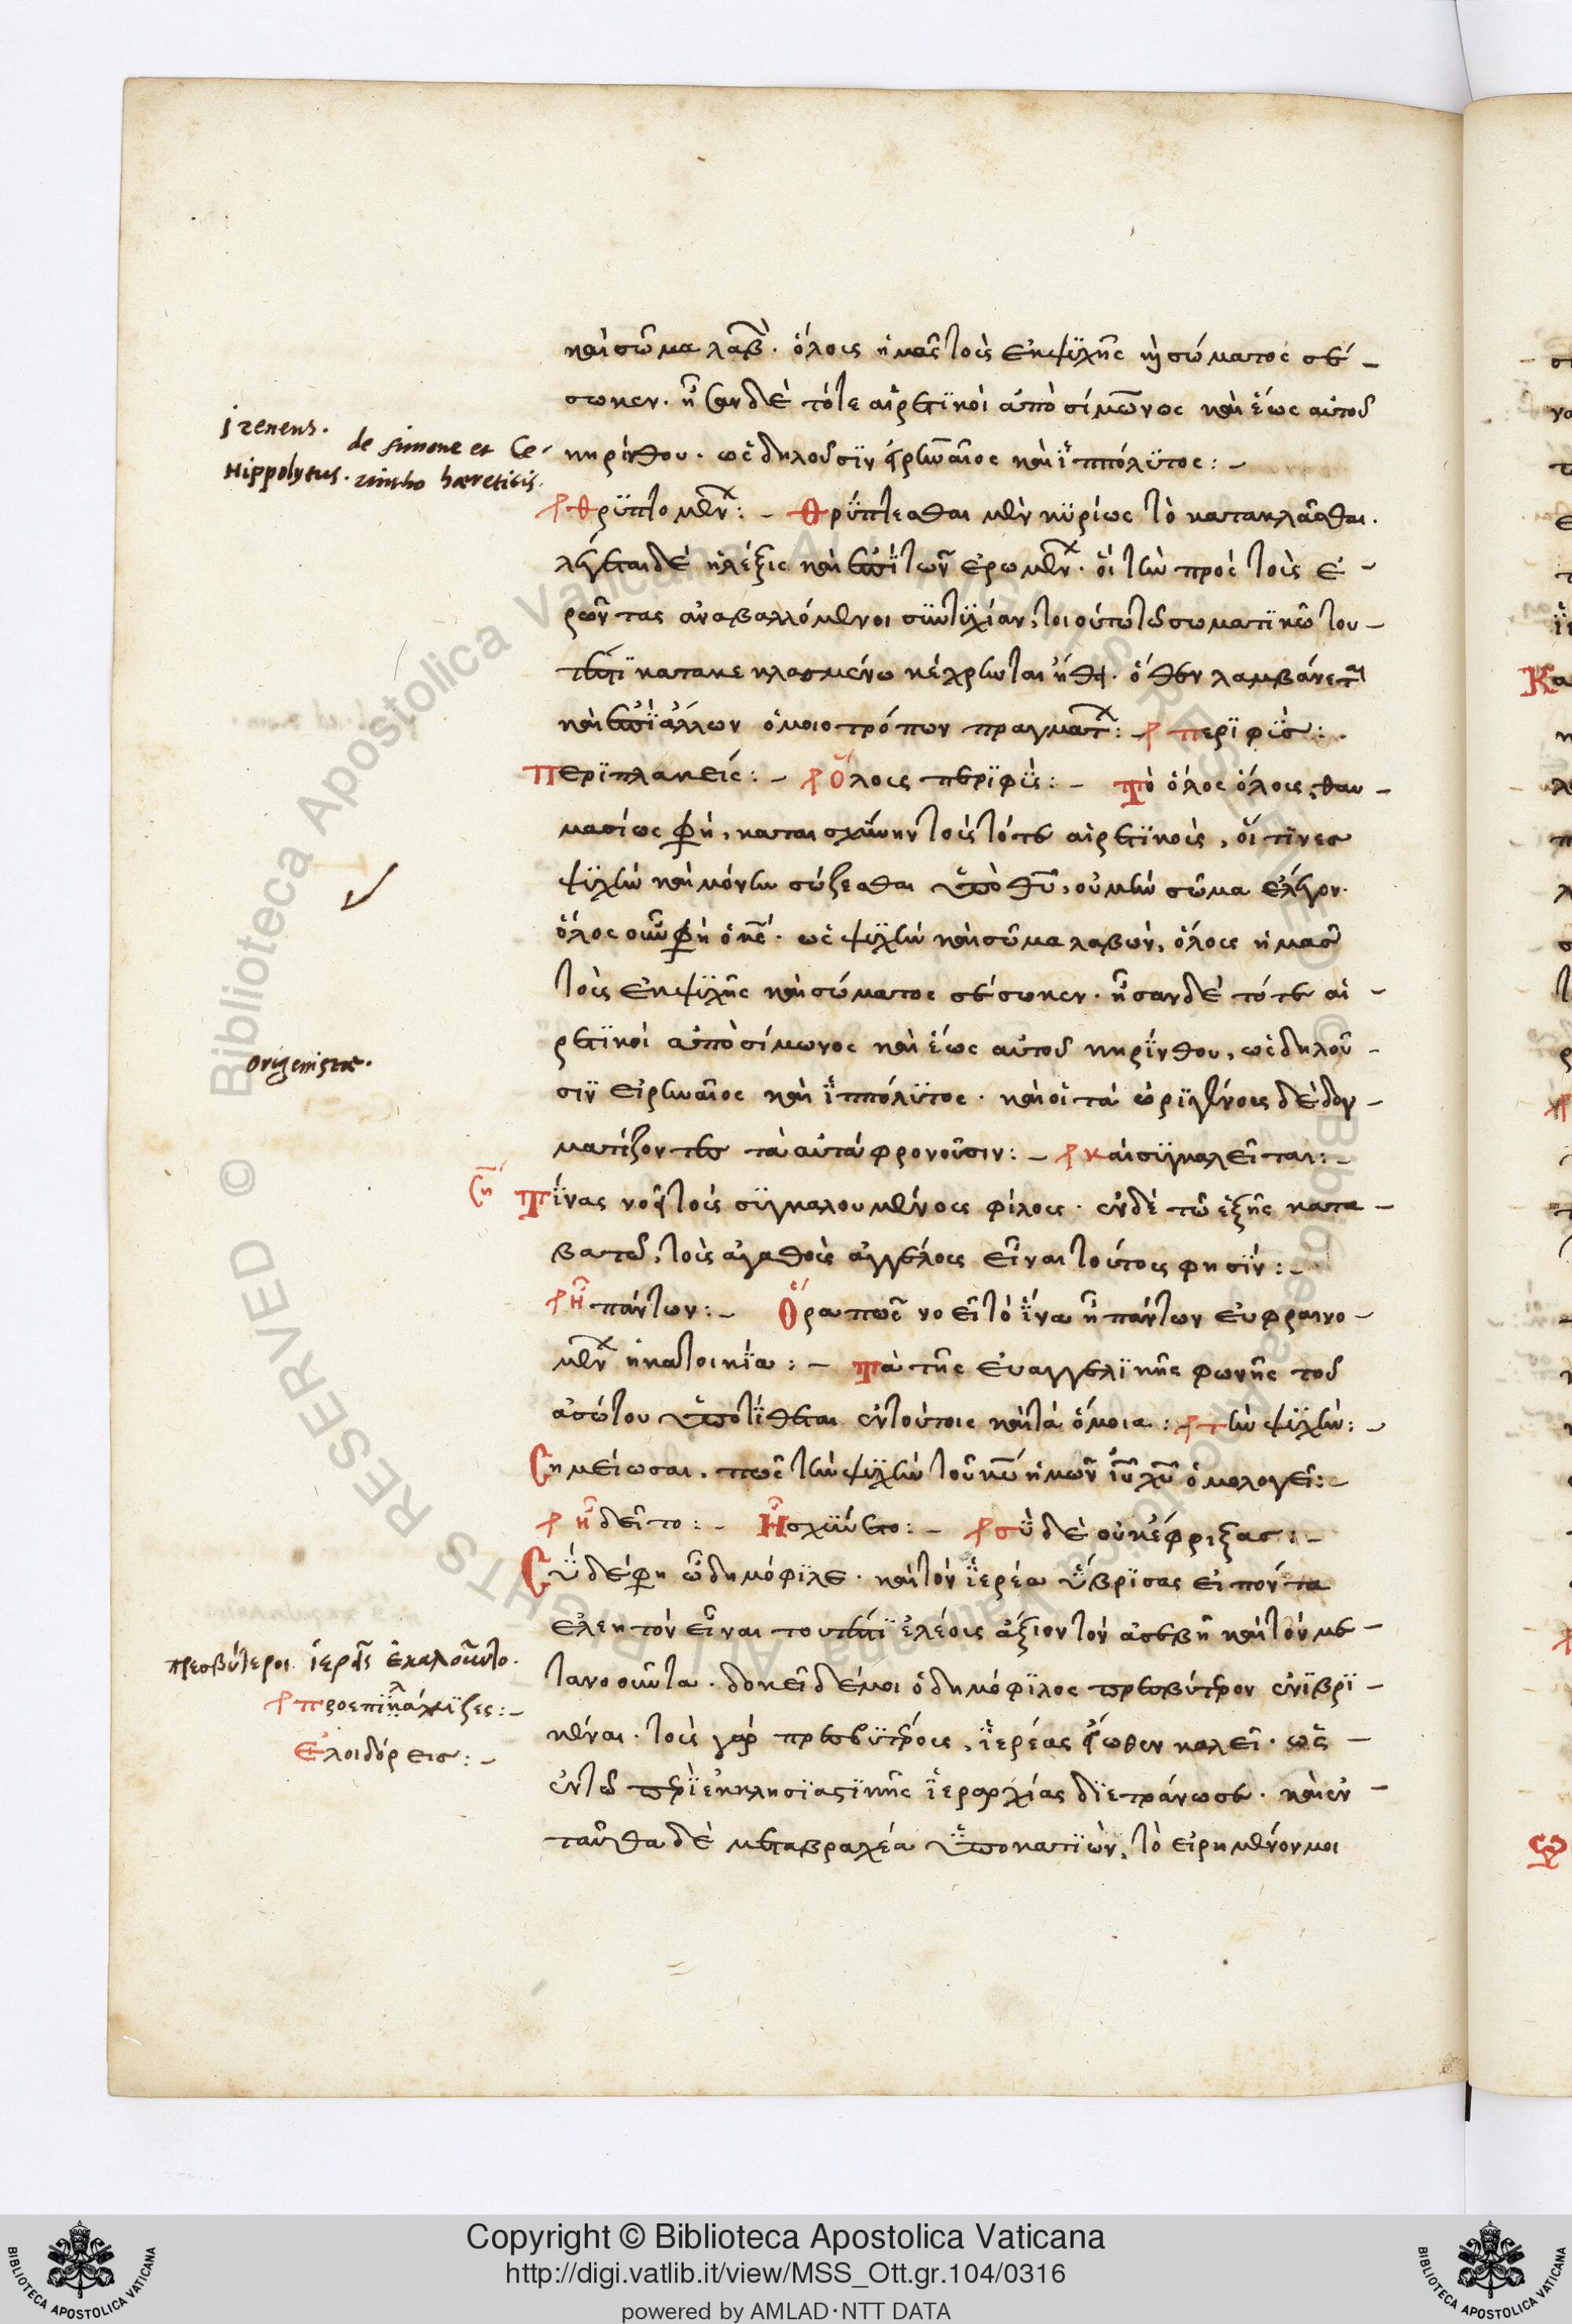 καὶ σῶμα λαβ. ὅλοις ἡμᾶς τοῖς ἐκ ψυχῆς καὶ σώματος σέ-
σωκεν. ἦσαν δὲ τότε αἱρετικοὶ ἀπὸ σίμωνος καὶ ἕως αὐτοῦ
κηρίνθου. ὡς δηλοῦσιν εἰρηναῖος καὶ ἱππόλυτος:-
jreneus.
Hippolytus.
de simone et Ce-
rintho hæreticis.
θρυπτομεν:- θρύπτεσθαι μὲν κυρίως τὸ κατακλᾶσθαι.
λέγεται δὲ ἡ λέξις καὶ ἐπὶ τῶν ἐρωμεν. οἳ τὴν πρὸς τοὺς ἐ-
ρῶντας ἀναβαλλόμενοι συντυχίαν, τοιούτω τῶ σωματικῶ του-
τέστι κατακεκλασμένω κέχρηνται ἤθει. ὅθεν λαμβάνεται
καὶ ἐπὶ ἄλλων ὁμοιοτρόπων πραγματ:- περιφὺς:.
περιπλακείς:- ὅλοις περιφύς:- τὸ ὅλος ὅλοις, θαυ-
μασίως φησὶ, καταισχύνων τοὺς τότε αἱρετικοὺς, οἵτινες
ψυχὴν καὶ μόνην σώζεσθαι ὑπὸ θυ, οὐ μὴν σῶμα ἔλεγον.
ὅλος οὖν φησὶ ὁ κς. ὡς ψυχὴν καὶ σῶμα λαβὼν, ὅλοις ἡμᾶς
τοῖς ἐκ ψυχῆς καὶ σώματος σέσωκεν. ἦσαν δὲ τότε αἱ-
ρετικοὶ ἀπὸ σίμωνος καὶ ἕως αὐτοῦ κηρίνθου, ὡς δηλοῦ-
Origenistæ.
σιν εἰρηναῖος καὶ ἱππόλυτος. καὶ οἱ τὰ ὠριγένους δὲ δογ-
ματίζοντες τὰ αὐτὰ φρονοῦσιν:- καὶ συγκαλεῖται:-
τίνας νοεῖ τοὺς συγκαλουμένους φίλους. ἐν δὲ τῶ ἑξῆς κατα-
βατῶ, τοὺς ἀγαθοὺς ἀγγέλους εἶναι τούτους φησίν:-
ἦ πάντων:- ὅρα πῶς νοεῖ τὸ ἵνα ἦ πάντων εὐφραινο-
μεν ἡ κατοικία:- τὰ τῆς εὐαγγελικῆς φωνῆς τοῦ
ἀσώτου ὑποτίθεται ἐν τούτοις καὶ τὰ ὅμοια: τὴν ψυχὴν:-
σημείωσαι, πῶς τὴν ψυχὴν τοῦ κυ ἡμῶν ιυ χυ ὁμολογεῖ:-
ἠδεῖτο:- ἠσχύνετο:- σὺ δὲ οὐκ ἔφριξας:-
σὺ δέ φησι ὦ δημόφιλε. καὶ τὸν ἱερέα ὕβρισας εἰπόντα
ἐλεητὸν εἶναι τουτέστι ἐλέους ἄξιον τὸν ἀσεβῆ καὶ τὸν με-
πρεσβύτεροι ἱερεῖς ἐκαλοῦντο.
τανοοῦντα. δοκεῖ δέ μοι ὁ δημόφιλος πρεσβύτερον ἐνυβρι-
κέναι. τοὺς γὰρ πρεσβυτέρους, ἱερέας εἴωθεν καλεῖ. ὡς
ἐλοιδόρεις:-
ἐν τῶ περὶ ἐκκλησιαστικῆς ἱεραρχίας διετράνωσε. καὶ ἐν-
ταῦθα δὲ μετὰ βραχέα ὑποκατιὼν, τὸ εἰρημένον μοι
© Biblioteca Apostolica Vaticana ALL RIGHTS RESERVED
Copyright © Biblioteca Apostolica Vaticana
http://digi.vatlib.it/view/MSS_Ott.gr.104/0316
powered by AMLAD·NTT DATA
BIBLIOTECA APOSTOLICA VATICANA
BIBLIOTECA APOSTOLICA VATICANA